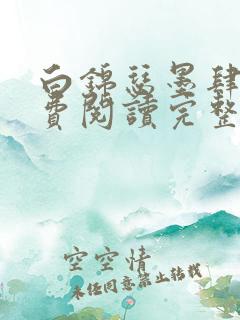 白錦瑟墨肆
費閱讀完整
空空情
未经同意禁止转载